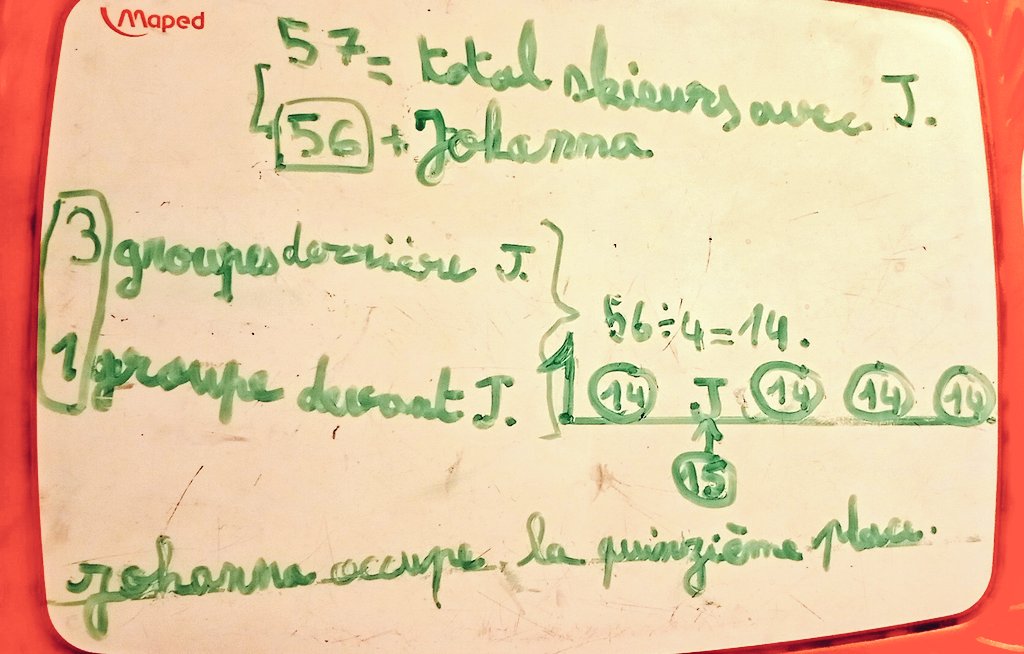 Maped
57 = total skieurs avec J.
56 + Johanna
3 groupes derrière J.
56 ÷ 4 = 14.
1 groupe devant J.
1 14 J 14 14 14
15
Johanna occupe la quinzième place.